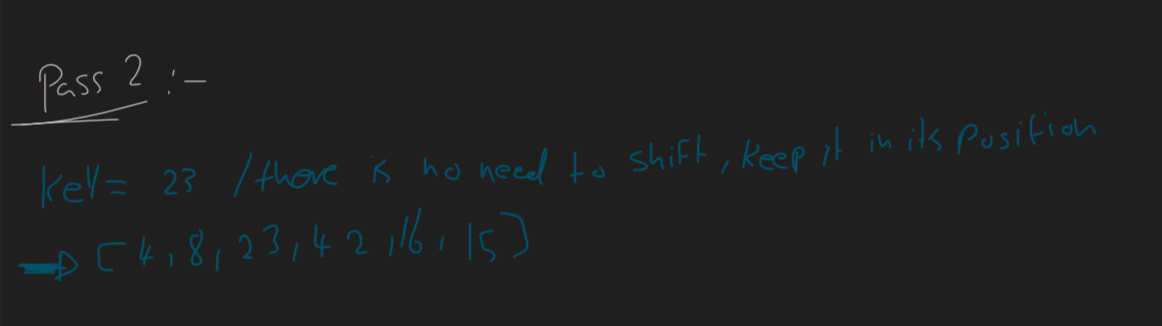 Pass 2 :-
Key = 23 / there is no need to shift, keep it in its position
→ [4, 8, 23, 42, 16, 15]